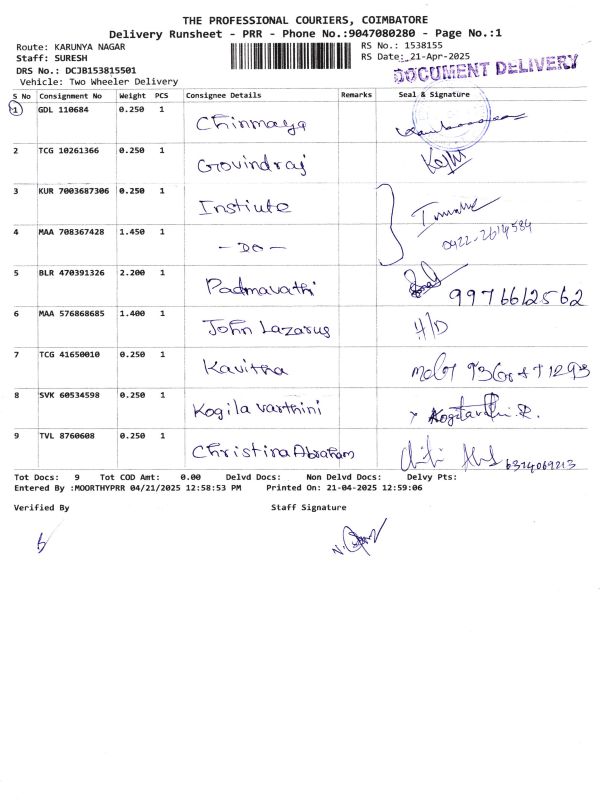 THE PROFESSIONAL COURIERS, COIMBATORE
Delivery Runsheet - PRR - Phone No.:9047080280 - Page No.:1
Route: KARUNYA NAGAR
RS No.: 1538155
Staff: SURESH
RS Date: 21-Apr-2025
DRS No.: DCJB153815501
DOCUMENT DELIVERY
Vehicle: Two Wheeler Delivery
S No Consignment No Weight PCS Consignee Details Remarks Seal & Signature
1 GDL 110684 0.250 1 Chinmaya
2 TCG 10261366 0.250 1 Govindraj
3 KUR 7003687306 0.250 1 Instiute
4 MAA 708367428 1.450 1 - DO - 0422-2614584
5 BLR 470391326 2.200 1 Padmavathi 9976612562
6 MAA 576868685 1.400 1 John Lazarus H/D
7 TCG 41650010 0.250 1 Kavitha
8 SVK 60534598 0.250 1 Kogila varthini
9 TVL 8760608 0.250 1 Christina Abraham 6374069213
Tot Docs: 9 Tot COD Amt: 0.00 Delvd Docs: Non Delvd Docs: Delvy Pts:
Entered By :MOORTHYPRR 04/21/2025 12:58:53 PM Printed On: 21-04-2025 12:59:06
Verified By Staff Signature